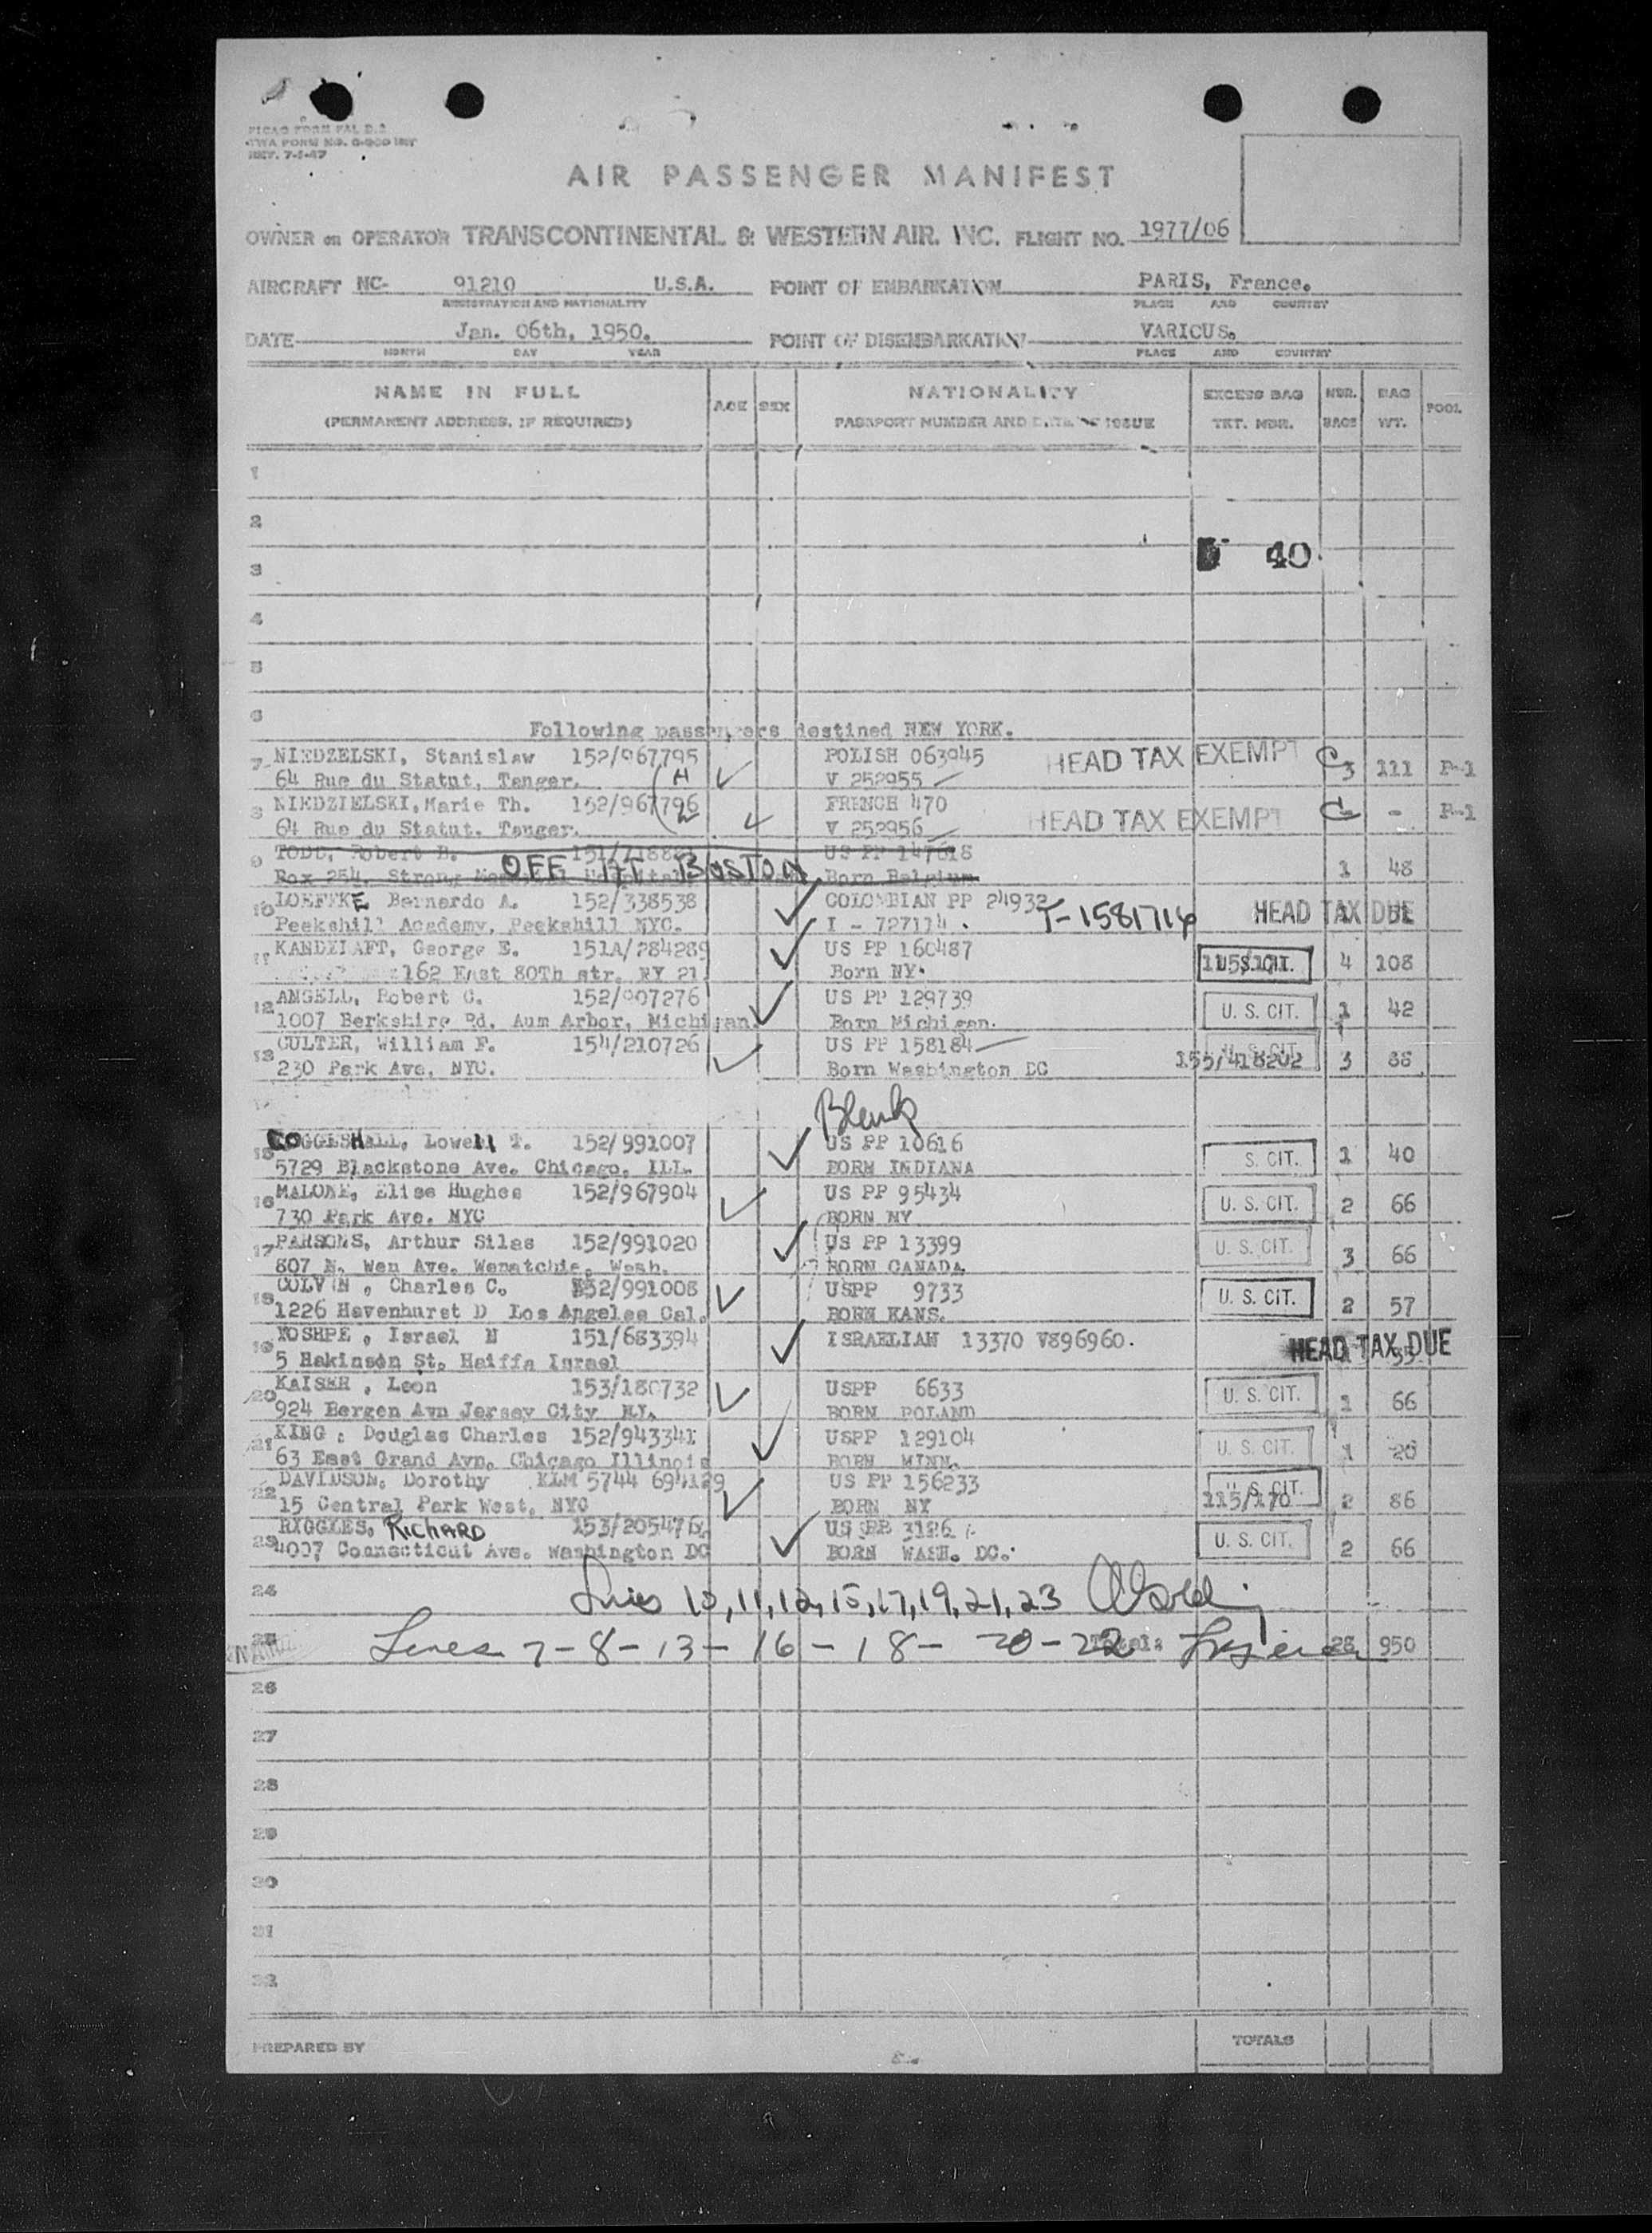 PICAO FORM FAL D.2
TWA FORM NO.
REV. 7-1-47
AIR PASSENGER MANIFEST
OWNER OR OPERATOR TRANSCONTINENTAL & WESTERN AIR. INC. FLIGHT NO. 1977/06
AIRCRAFT NC- 91210 U.S.A. POINT OF EMBARKATION PARIS, France.
REGISTRATION AND NATIONALITY PLACE AND COUNTRY
DATE Jan. 06th, 1950. POINT OF DISEMBARKATION VARICUS.
MONTH DAY YEAR PLACE AND COUNTRY
NAME IN FULL AGE SEX NATIONALITY EXCESS BAG NBR. BAG POOL
(PERMANENT ADDRESS, IF REQUIRED) PASSPORT NUMBER AND DATE OF ISSUE TKT. NBR. BAGS WT.
1
2
40
3
4
5
6
Following passengers destined NEW YORK.
7 NIEDZELSKI, Stanislaw 152/967795 POLISH 063945 HEAD TAX EXEMPT 3 111 P-1
64 Rue du Statut, Tanger. V 252955
8 NIEDZIELSKI, Marie Th. 152/967796 FRENCH 470 HEAD TAX EXEMPT - - P-1
64 Rue du Statut. Tanger. V 252956
9 TODD, Robert B. US PP 147618 1 48
OFF AT BOSTON
Box 254, Strong Hospital Born Belgium
10 LOEFFKE Bernardo A. 152/338538 COLOMBIAN PP 24932 T-1581716 HEAD TAX DUE
Peekshill Academy, Peekshill NYC. I - 727114.
11 KANDZIAFT, George E. 151A/284289 US PP 160487 U. S. CIT. 4 108
162 East 80Th str. NY 21. Born NY.
12 ANGELL, Robert C. 152/907276 US PP 129739 U. S. CIT. 1 42
1007 Berkshire Rd, Aum Arbor, Michigan. Born Michigan.
13 CULTER, William F. 154/210726 US PP 158184 U. S. CIT. 155/418202 3 88
230 Park Ave, NYC. Born Washington DC
Blank
15 COGGESHALL, Lowell T. 152/991007 US PP 10616 S. CIT. 1 40
5729 Blackstone Ave. Chicago, ILL. BORN INDIANA
16 MALONE, Elise Hughes 152/967904 US PP 95434 U. S. CIT. 2 66
730 Park Ave. NYC BORN NY
17 PARSONS, Arthur Silas 152/991020 US PP 13399 U. S. CIT. 3 66
807 N. Wen Ave. Wenatchie, Wash. BORN CANADA
18 COLVIN , Charles C. 152/991008 USPP 9733 U. S. CIT. 2 57
1226 Havenhurst D Los Angeles Cal. BORN KANS.
19 YOSHPE , Israel M 151/683394 ISRAELIAN 13370 V896960. HEAD TAX DUE
5 Hakinson St. Haiffa Israel
20 KAISER , Leon 153/180732 USPP 6633 U. S. CIT. 1 66
924 Bergen Avn Jersey City NJ. BORN POLAND
21 KING : Douglas Charles 152/943341 USPP 129104 U. S. CIT. 1 26
63 East Grand Avn. Chicago Illinois BORN MINN.
22 DAVIDSON, Dorothy KLM 5744 694129 US PP 156233 U. S. CIT. 115/170 2 86
15 Central Park West, NYC BORN NY
23 RIGGLES, RICHARD 153/205476 US PP 3126 U. S. CIT. 2 66
4007 Connecticut Ave. Washington DC BORN WASH. DC.
24 Lines 10, 11, 12, 15, 17, 19, 21, 23
25 Lines 7-8-13-16-18-20-22 Total: 28 950
26
27
28
29
30
31
32
PREPARED BY TOTALS